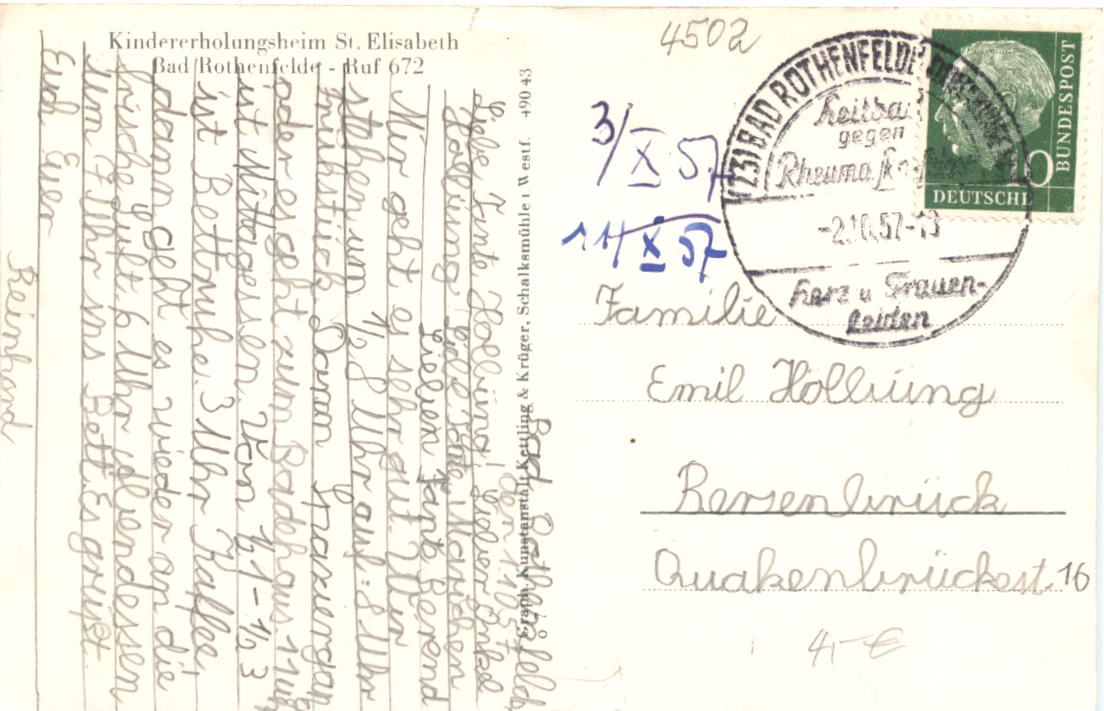 Kindererholungsheim St. Elisabeth
Bad Rothenfelde - Ruf 672
Graph. Kunstanstalt Kettling & Krüger, Schalksmühle i Westf. +90 43
Bad Rothenfelde
den 1.10.57
Liebe Tante Hollbüng! Lieber Onkel
Hollbüng! Marichen
Lieben Tante Berend
Mir geht es sehr gut. Wir
stehen um ½ 8 Uhr auf. 8 Uhr
Frühstück. Danan Spaziergan
oder es geht zum Badehaus. 11 Uhr
ist Mittagessen. Von ½ 1 - ½ 3
ist Bettruhe. 3 Uhr Kaffee,
dann geht es wieder an die
frische Luft. 6 Uhr Abendessen
Um 7 Uhr ins Bett. Es grüßt
Euch Euer
Reinhard
4502
3/X 57
11/X 57
(23) BAD ROTHENFELDE
Heilbad
gegen
Rheuma
-2.10.57-13
Herz u Frauen-
leiden
10
DEUTSCHE
BUNDESPOST
Familie
Emil Hollbüng
Bersenbrück
Quakenbrückest. 16
4,- €